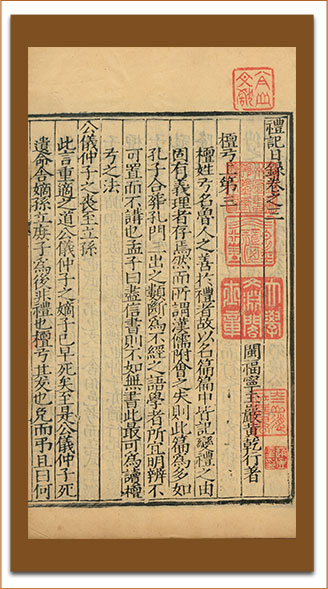 禮記日錄卷之三
閩福寧玉巖黃乾行著
檀弓上第三
檀姓弓名魯人之善於禮者故以名篇篇中記變禮之由
固有義理者存焉然而所謂漢儒附會之失則此篇為多如
孔子合葬孔門三出之類斷為不經之語學者所宜明辨不
可置而不講也孟子曰盡信書則不如無書此最可為讀檀
弓之法
公儀仲子之喪至立孫
此言重適之道公儀仲子之嫡子已早死矣至是公儀仲子死
遺命舍嫡孫立庶子為後非禮也檀弓其友也免而弔且曰何